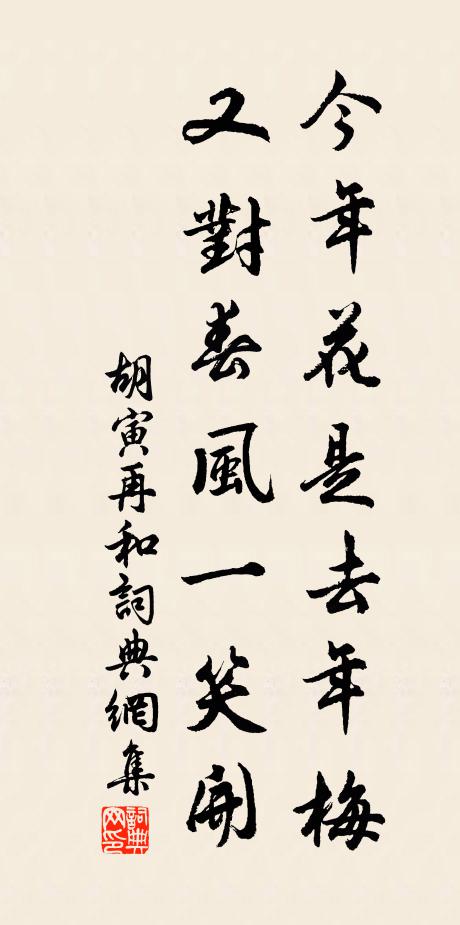 今年花是去年梅
又對春風一笑開
胡寅再和詞典網集
詞典
网印